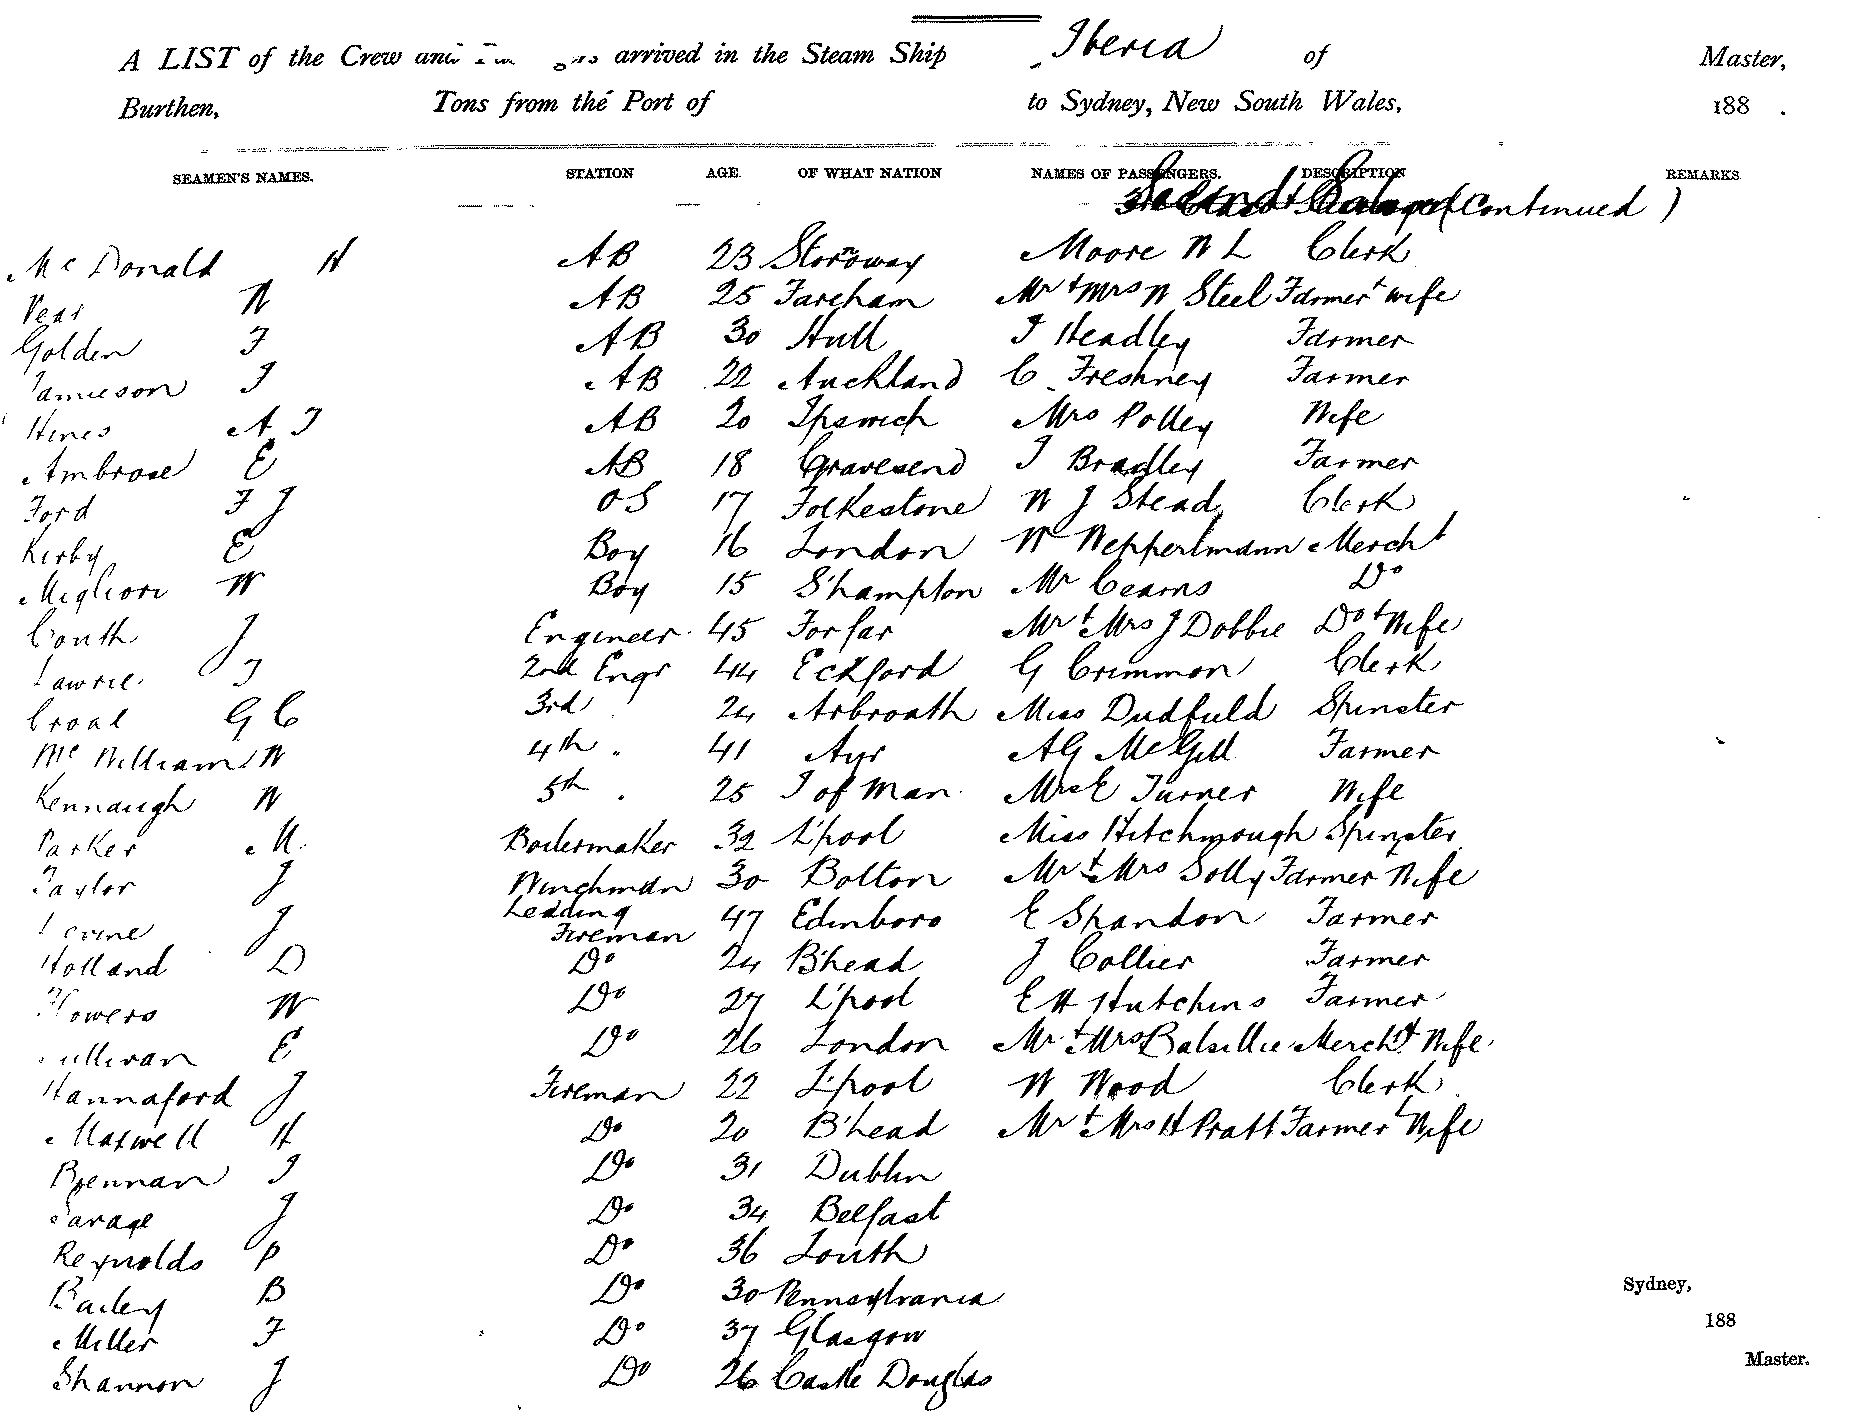 A LIST of the Crew and arrived in the Steam Ship Iberia of Master,
Burthen, Tons from the Port of to Sydney, New South Wales, 188 .
SEAMEN'S NAMES. STATION AGE OF WHAT NATION NAMES OF PASSENGERS. DESCRIPTION REMARKS
Second Saloon (Continued)
McDonald H AB 23 Stornoway Moore W L Clerk
Vear W AB 25 Fareham Mr & Mrs W Steel Farmer & wife
Golden F AB 30 Hull J Headley Farmer
Jamieson J AB 22 Auckland C Freshney Farmer
Hines A J AB 20 Ipswich Mrs Polley Wife
Ambrose E AB 18 Gravesend J Bradley Farmer
Ford F J OS 17 Folkestone W J Stead Clerk
Kirby E Boy 16 London W Weppertmann Mercht
Migliori W Boy 15 S'hampton Mr Cearns Do
Couth J Engineer 45 Forfar Mr & Mrs J Dobbie Do & Wife
Lawrie J 2nd Engr 44 Eckford G Crimmon Clerk
Croal G C 3rd 24 Arbroath Miss Dudfield Spinster
McWilliams W 4th " 41 Ayr A G McGill Farmer
Kennaugh W 5th " 25 I of Man Mrs E Turner Wife
Parker M. Boilermaker 32 L'pool Miss Hitchmough Spinster
Taylor J Winchman 30 Bolton Mr & Mrs Solly Farmer Wife
J Leading Fireman 47 Edinboro E Shandon Farmer
Holland D Do 24 B'head J Collier Farmer
Flowers W Do 27 L'pool E H Hutchins Farmer
Sullivan E Do 26 London Mr & Mrs Balsillie Mercht & Wife
Hannaford J Fireman 22 L'pool W Wood Clerk
Maxwell H Do 20 B'head Mr & Mrs H Pratt Farmer & Wife
Brennan J Do 31 Dublin
Savage J Do 34 Belfast
Reynolds P Do 36 Louth
Bailey B Do 30 Pennsylvania
Sydney,
Miller F Do 37 Glasgow
188
Master.
Shannon J Do 26 Castle Douglas